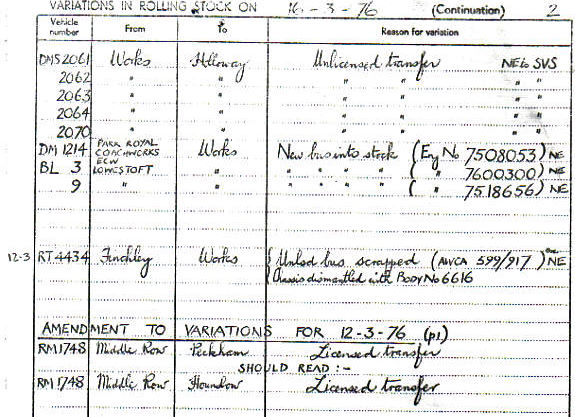 VARIATIONS IN ROLLING STOCK ON 16-3-76 (Continuation) 2
Vehicle number From To Reason for variation
DMS 2061 Works Holloway Unlicensed transfer NE SVS
2062 " " " " "
2063 " " " " "
2064 " " " "
2070 " " " " "
DM 1214 PARK ROYAL COACHWORKS Works New bus into stock (Eng No 7508053) NE
BL 3 ECW LOWESTOFT " " " " " ( " 7600300) NE
9 " " " " " " ( " 7518656) NE
12-3 RT4434 Finchley Works { Unlsd bus scrapped (AWCA 599/917) NE
{ Chassis dismantled with Body No 6616
AMENDMENT TO VARIATIONS FOR 12-3-76 (p1)
RM1748 Middle Row Peckham Licensed transfer
SHOULD READ :-
RM1748 Middle Row Hounslow Licensed transfer